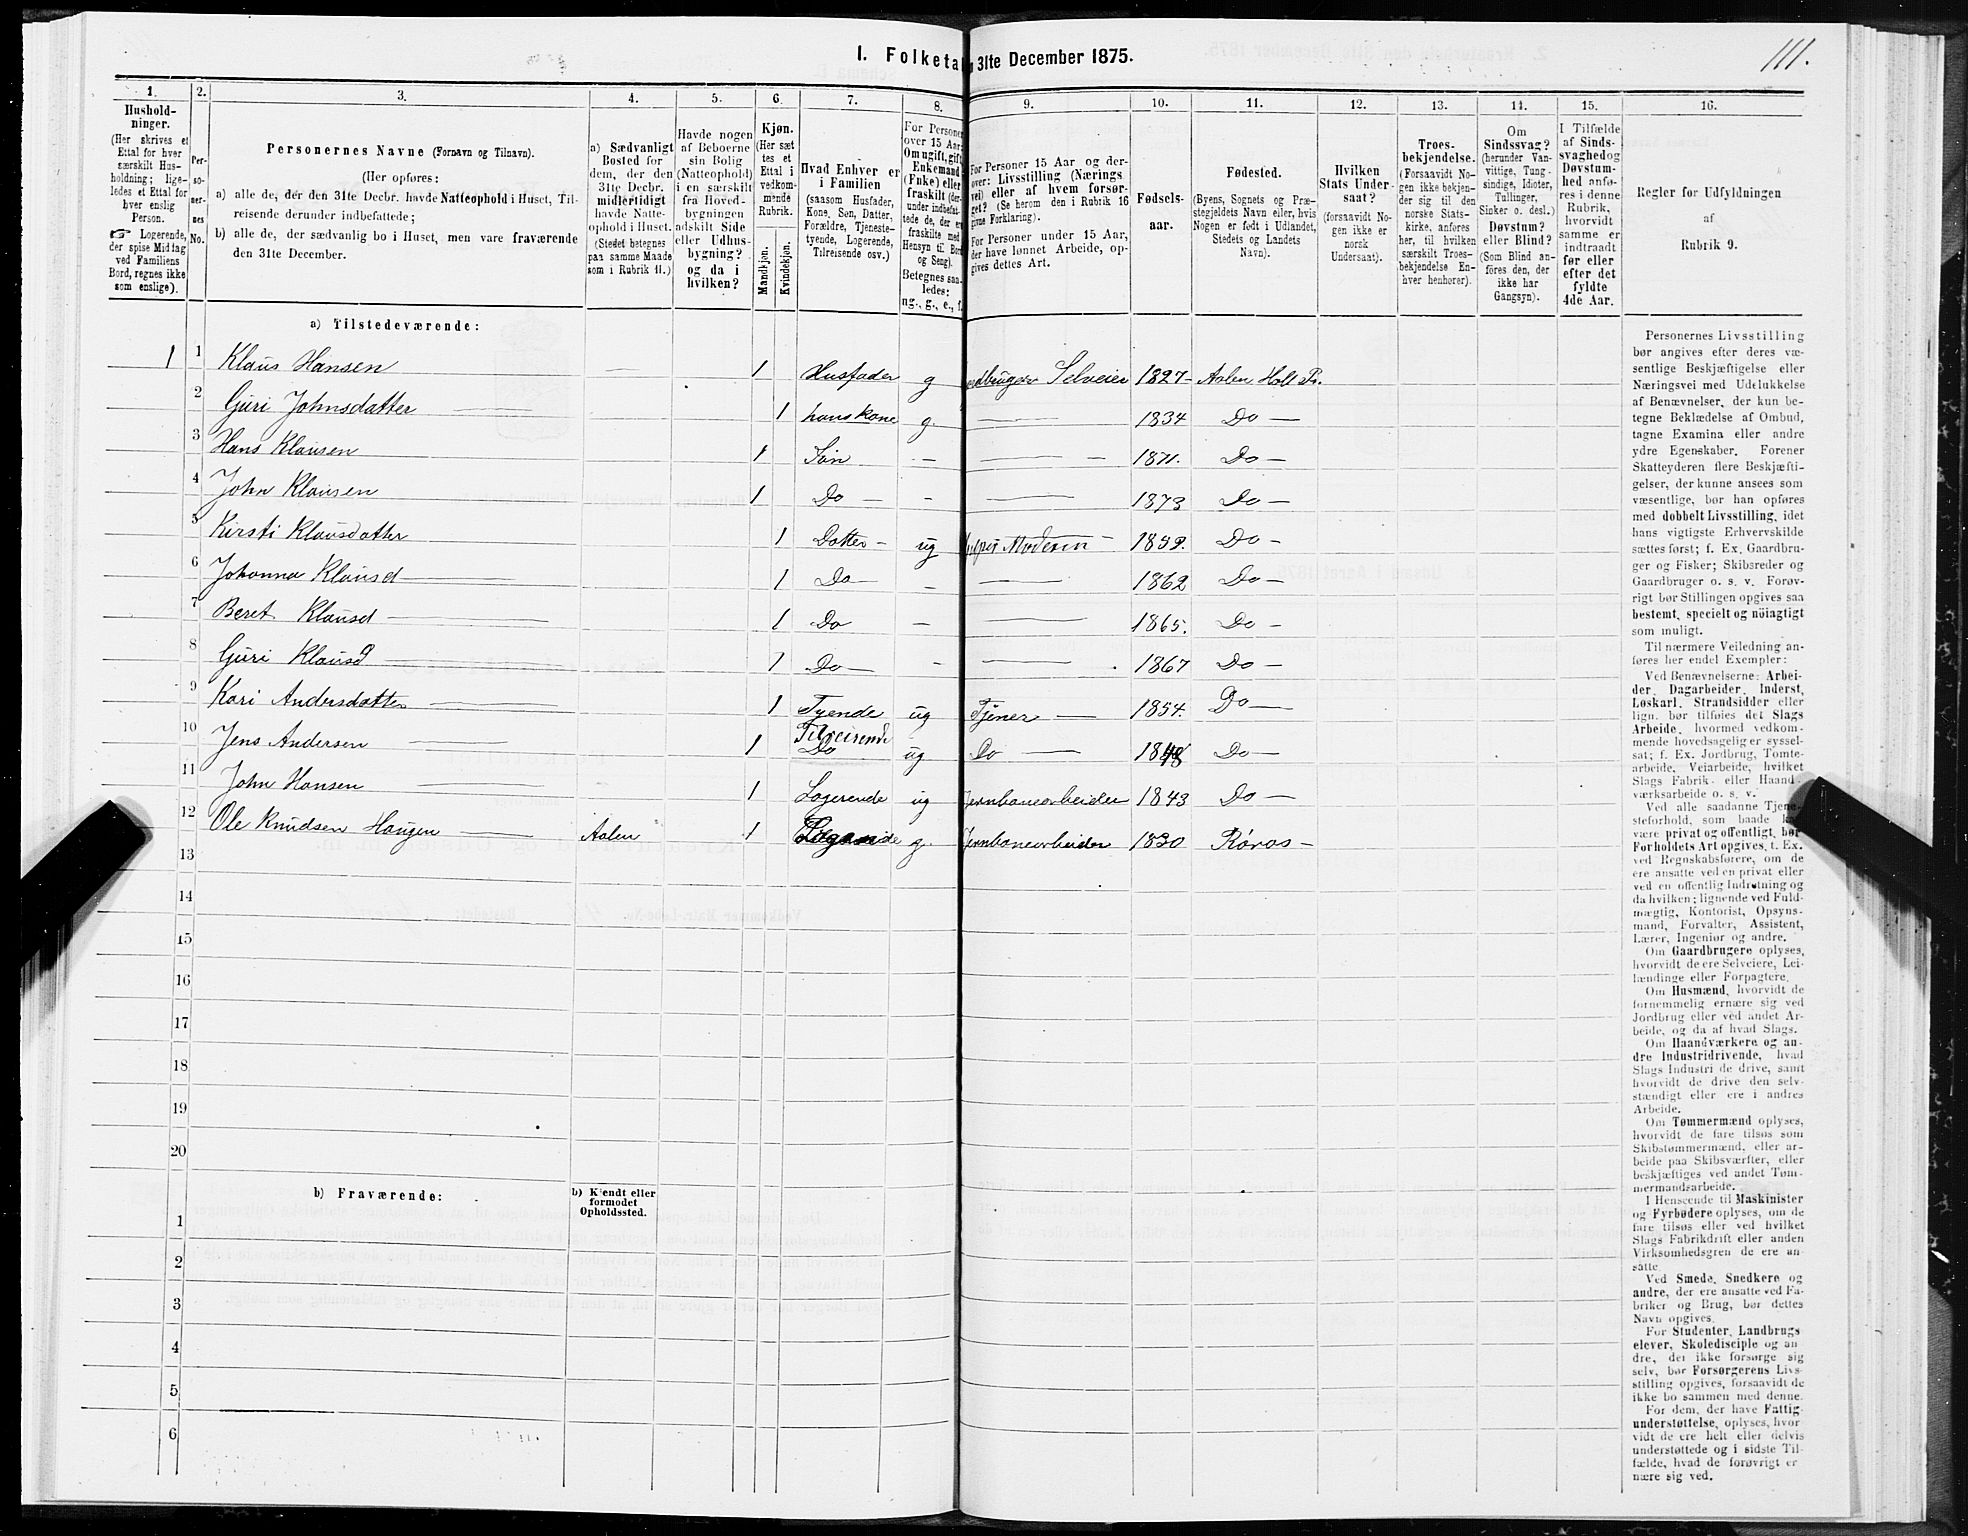 I. Folketa 31te December 1875.
111.
1. 2. 3. 4. 5. 6. 7. 8. 9. 10. 11. 12. 13. 14. 15. 16.
Hushold-
ninger.
(Her skrives et
Ettal for hver
særskilt Hus-
holdning; lige-
ledes et Ettal for
hver enslig
Person.
☞ Logerende,
der spise Middag
ved Familiens
Bord, regnes ikke
som enslige).
Per-
so-
ner-
nes
No.
Personernes Navne (Fornavn og Tilnavn).
(Her opføres:
a) alle de, der den 31te Decbr. havde Natteophold i Huset, Til-
reisende derunder indbefattede;
b) alle de, der sædvanlig bo i Huset, men vare fraværende
den 31te December.
a) Sædvanligt
Bosted for
dem, der den
31te Decbr.
midlertidigt
havde Natte-
ophold i Huset.
(Stedet betegnes
paa samme Maade
som i Rubrik 11.)
Havde nogen
af Beboerne
sin Bolig
(Natteophold)
i en særskilt
fra Hoved-
bygningen
adskilt Side
eller Udhus-
bygning?
og da i
hvilken?
Kjøn.
(Her sæt
tes et
Ettal i
vedkom-
mende
Rubrik.
Mandkjøn.
Kvindekjøn.
Hvad Enhver er
i Familien
(saasom Husfader,
Kone, Søn, Datter,
Forældre, Tjeneste-
tyende, Logerende,
Tilreisende osv.)
For Personer
over 15 Aar:
Om ugift, gift,
Enkemand
(Enke) eller
fraskilt (der-
under indbefat-
tede de, der er
fraskilte med
Hensyn til Bord
og Seng).
Betegnes saa-
ledes:
ug., g., e., f.
For Personer 15 Aar og der-
over: Livsstilling (Nærings
vei) eller af hvem forsør-
get? (Se herom den i Rubrik 16
givne Forklaring).
For Personer under 15 Aar,
der have lønnet Arbeide, op-
gives dettes Art.
Fødsels-
aar.
Fødested.
(Byens, Sognets og Præ-
stegjeldets Navn eller, hvis
Nogen er født i Udlandet,
Stedets og Landets
Navn).
Hvilken
Stats Under-
saat?
(forsaavidt No-
gen ikke er
norsk
Undersaat).
Troes-
bekjendelse.
(Forsaavidt No-
gen ikke bekjen-
der sig til den
norske Stats-
kirke, anføres
her, til hvilken
særskilt Troes-
bekjendelse En-
hver henhører).
Om
Sindssvag?
(herunder Van-
vittige, Tung-
sindige, Idioter,
Tullinger,
Sinker o. desl.)
Døvstum?
eller Blind?
(Som Blind an-
føres den, der
ikke har
Gangsyn).
I Tilfælde
af Sinds-
svaghed og
Døvstum-
hed anfø-
res i denne
Rubrik,
hvorvidt
samme er
indtraadt
før eller
efter det
fyldte
4de Aar.
Regler for Udfyldningen
af
Rubrik 9.
a) Tilstedeværende:
1 1 Klaus Hansen 1 Husfader g edbruger Selveier 1827 Aalen Holt Pr.
2 Guri Johnsdatter 1 hans kone g. 1834 Do
3 Hans Klausen 1 Søn 1871. Do
4 John Klausen 1 Do 1873 Do
5 Kirsti Klausdatter 1 Datter ug hjelper Moderen 1859. Do
6 Johanna Klausd 1 Do 1862 Do
7 Beret Klausd 1 Do 1865. Do
8 Guri Klausd 1 Do 1867 Do
9 Kari Andersdatter 1 Tyende ug Tjener 1854. Do
10 Jens Andersen 1 Tilreisende Do ug Do 1848 Do
11 John Hansen 1 Logerende ug Jernbanearbeider 1843 Do
12 Ole Knudsen Haugen Aalen 1 g. Jernbanearbeider 1830 Røros
13
14
15
16
17
18
19
20
b) Fraværende:
b) Kjendt eller
formodet
Opholdssted.
1
2
3
4
5
6
Personernes Livsstilling
bør angives efter deres væ-
sentlige Beskjæftigelse eller
Næringsvei med Udelukkelse
af Benævnelser, der kun be-
tegne Beklædelse af Ombud,
tagne Examina eller andre
ydre Egenskaber. Forener
Skatteyderen flere Beskjæfti-
gelser, der kunne ansees som
væsentlige, bør han opføres
med dobbelt Livsstilling, idet
hans vigtigste Erhvervskilde
sættes først; f. Ex. Gaardbru-
ger og Fisker; Skibsreder og
Gaardbruger o. s. v. Forøv-
rigt bør Stillingen opgives saa
bestemt, specielt og nöiagtigt
som muligt.
Til nærmere Veiledning an-
føres her endel Exempler:
Ved Benævnelserne: Arbei-
der, Dagarbeider, Inderst,
Løskarl, Strandsidder eller
lign. bør tilføies det Slags
Arbeide, hvormed vedkom-
mende hovedsagelig er syssel-
sat; f. Ex. Jordbrug, Tomte-
arbeide, Veiarbeide, hvilket
Slags Fabrik- eller Haand-
værksarbeide o. s. v.
Ved alle saadanne Tjene-
steforhold, som baade kan
være privat og offentligt, bør
Forholdets Art opgives, t. Ex.
ved Regnskabsførere, om de
ere ansatte ved en privat eller
ved en offentlig Indretning og
da hvilken; lignende ved Fuld-
mægtig, Kontorist, Opsyns-
mand, Forvalter, Assistent,
Lærer, Ingeniør og andre.
Om Gaardbrugere oplyses,
hvorvidt de ere Selveiere, Lei-
lændinge eller Forpagtere.
Om Husmænd, hvorvidt de
fornemmelig ernære sig ved
Jordbrug eller ved andet Ar-
beide, og da af hvad Slags.
Om Haandværkere og an-
dre Industridrivende, hvad
Slags Industri de drive, samt
hvorvidt de drive den selv-
stændigt eller ere i andres
Arbeide.
Om Tømmermænd oplyses,
hvorvidt de fare tilsøs som
Skibstømmermænd, eller ar-
beide paa Skibsværfter, eller
beskjæftiges ved andet Tøm-
mermandsarbeide.
I Henseende til Maskinister
og Fyrbødere oplyses, om de
fare tilsøs eller ved hvilket
Slags Fabrikdrift eller anden
Virksomhedsgren de ere an-
satte.
Ved Smede, Snedkere og
andre, der ere ansatte ved Fa-
briker og Brug, bør dettes
Navn opgives.
For Studenter, Landbrugs
elever, Skoledisciple og an
dre, der ikke forsørge sig
selv, bør Forsørgerens Livs-
stilling opgives, forsaavidt de
ikke bo sammen med denne.
For dem, der have Fattig-
understøttelse, oplyses, hvor
vidt de ere helt eller delvis
understøttede og i sidste Til-
fælde, hvad de forøvrigt er
nære sig ved.